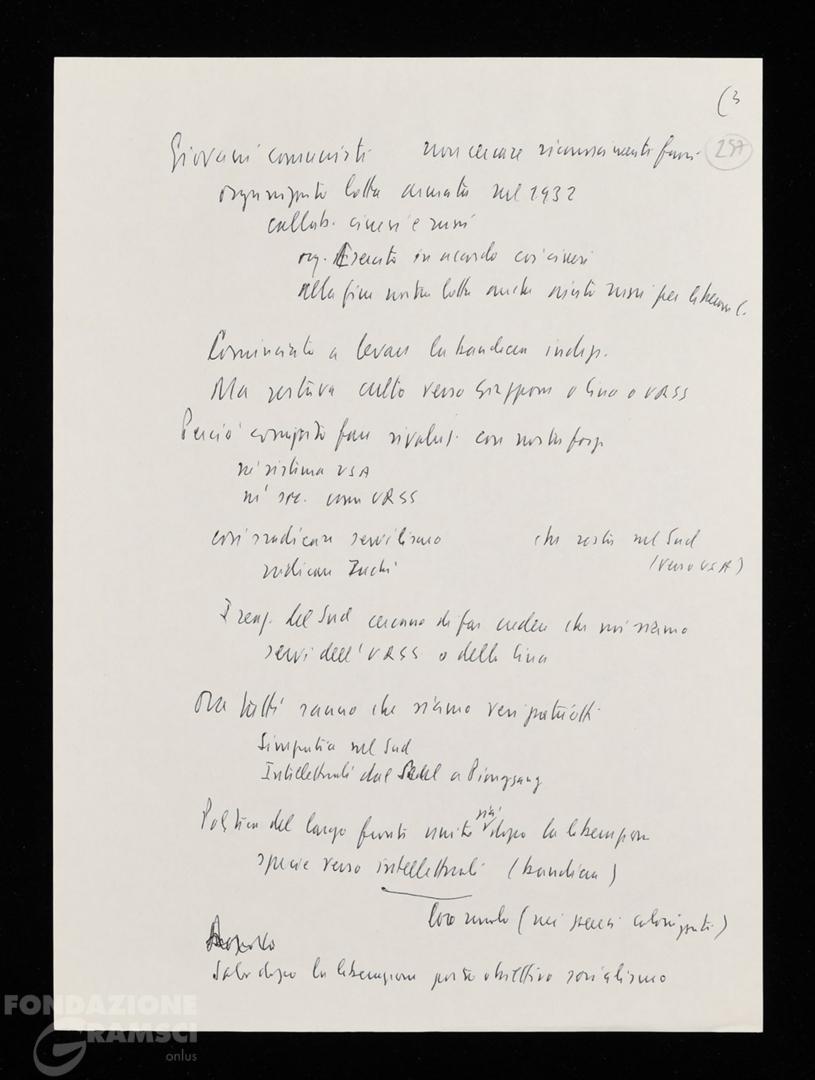 (3
257
Giovani comunisti non cercare riconoscimenti fuori
organizzato lotta armata nel 1932
collab. cinesi e russi
org. Esercito in accordo coi cinesi
alla fine nostra lotta anche aiuto russi per liberaz.
Cominciato a levare la bandiera indip.
Ma restava culto verso Giappone o Cina o URSS
Perciò compito fare rivoluz. con nostre forze
né sistema USA
né soc. come URSS
così sradicare servilismo che resta nel Sud
radicare Juché (verso USA)
I reaz. del Sud cercano di far credere che noi siamo
servi dell'URSS o della Cina
Ora tutti sanno che siamo veri patrioti
Simpatia nel Sud
Intellettuali dal Sud a Piongyang
Politica del largo fronte unito già dopo la liberazione
specie verso intellettuali (bandiera)
loro ruolo (nei paesi colonizzati)
Solo dopo la liberazione posto obiettivo socialismo
FONDAZIONE
GRAMSCI
onlus